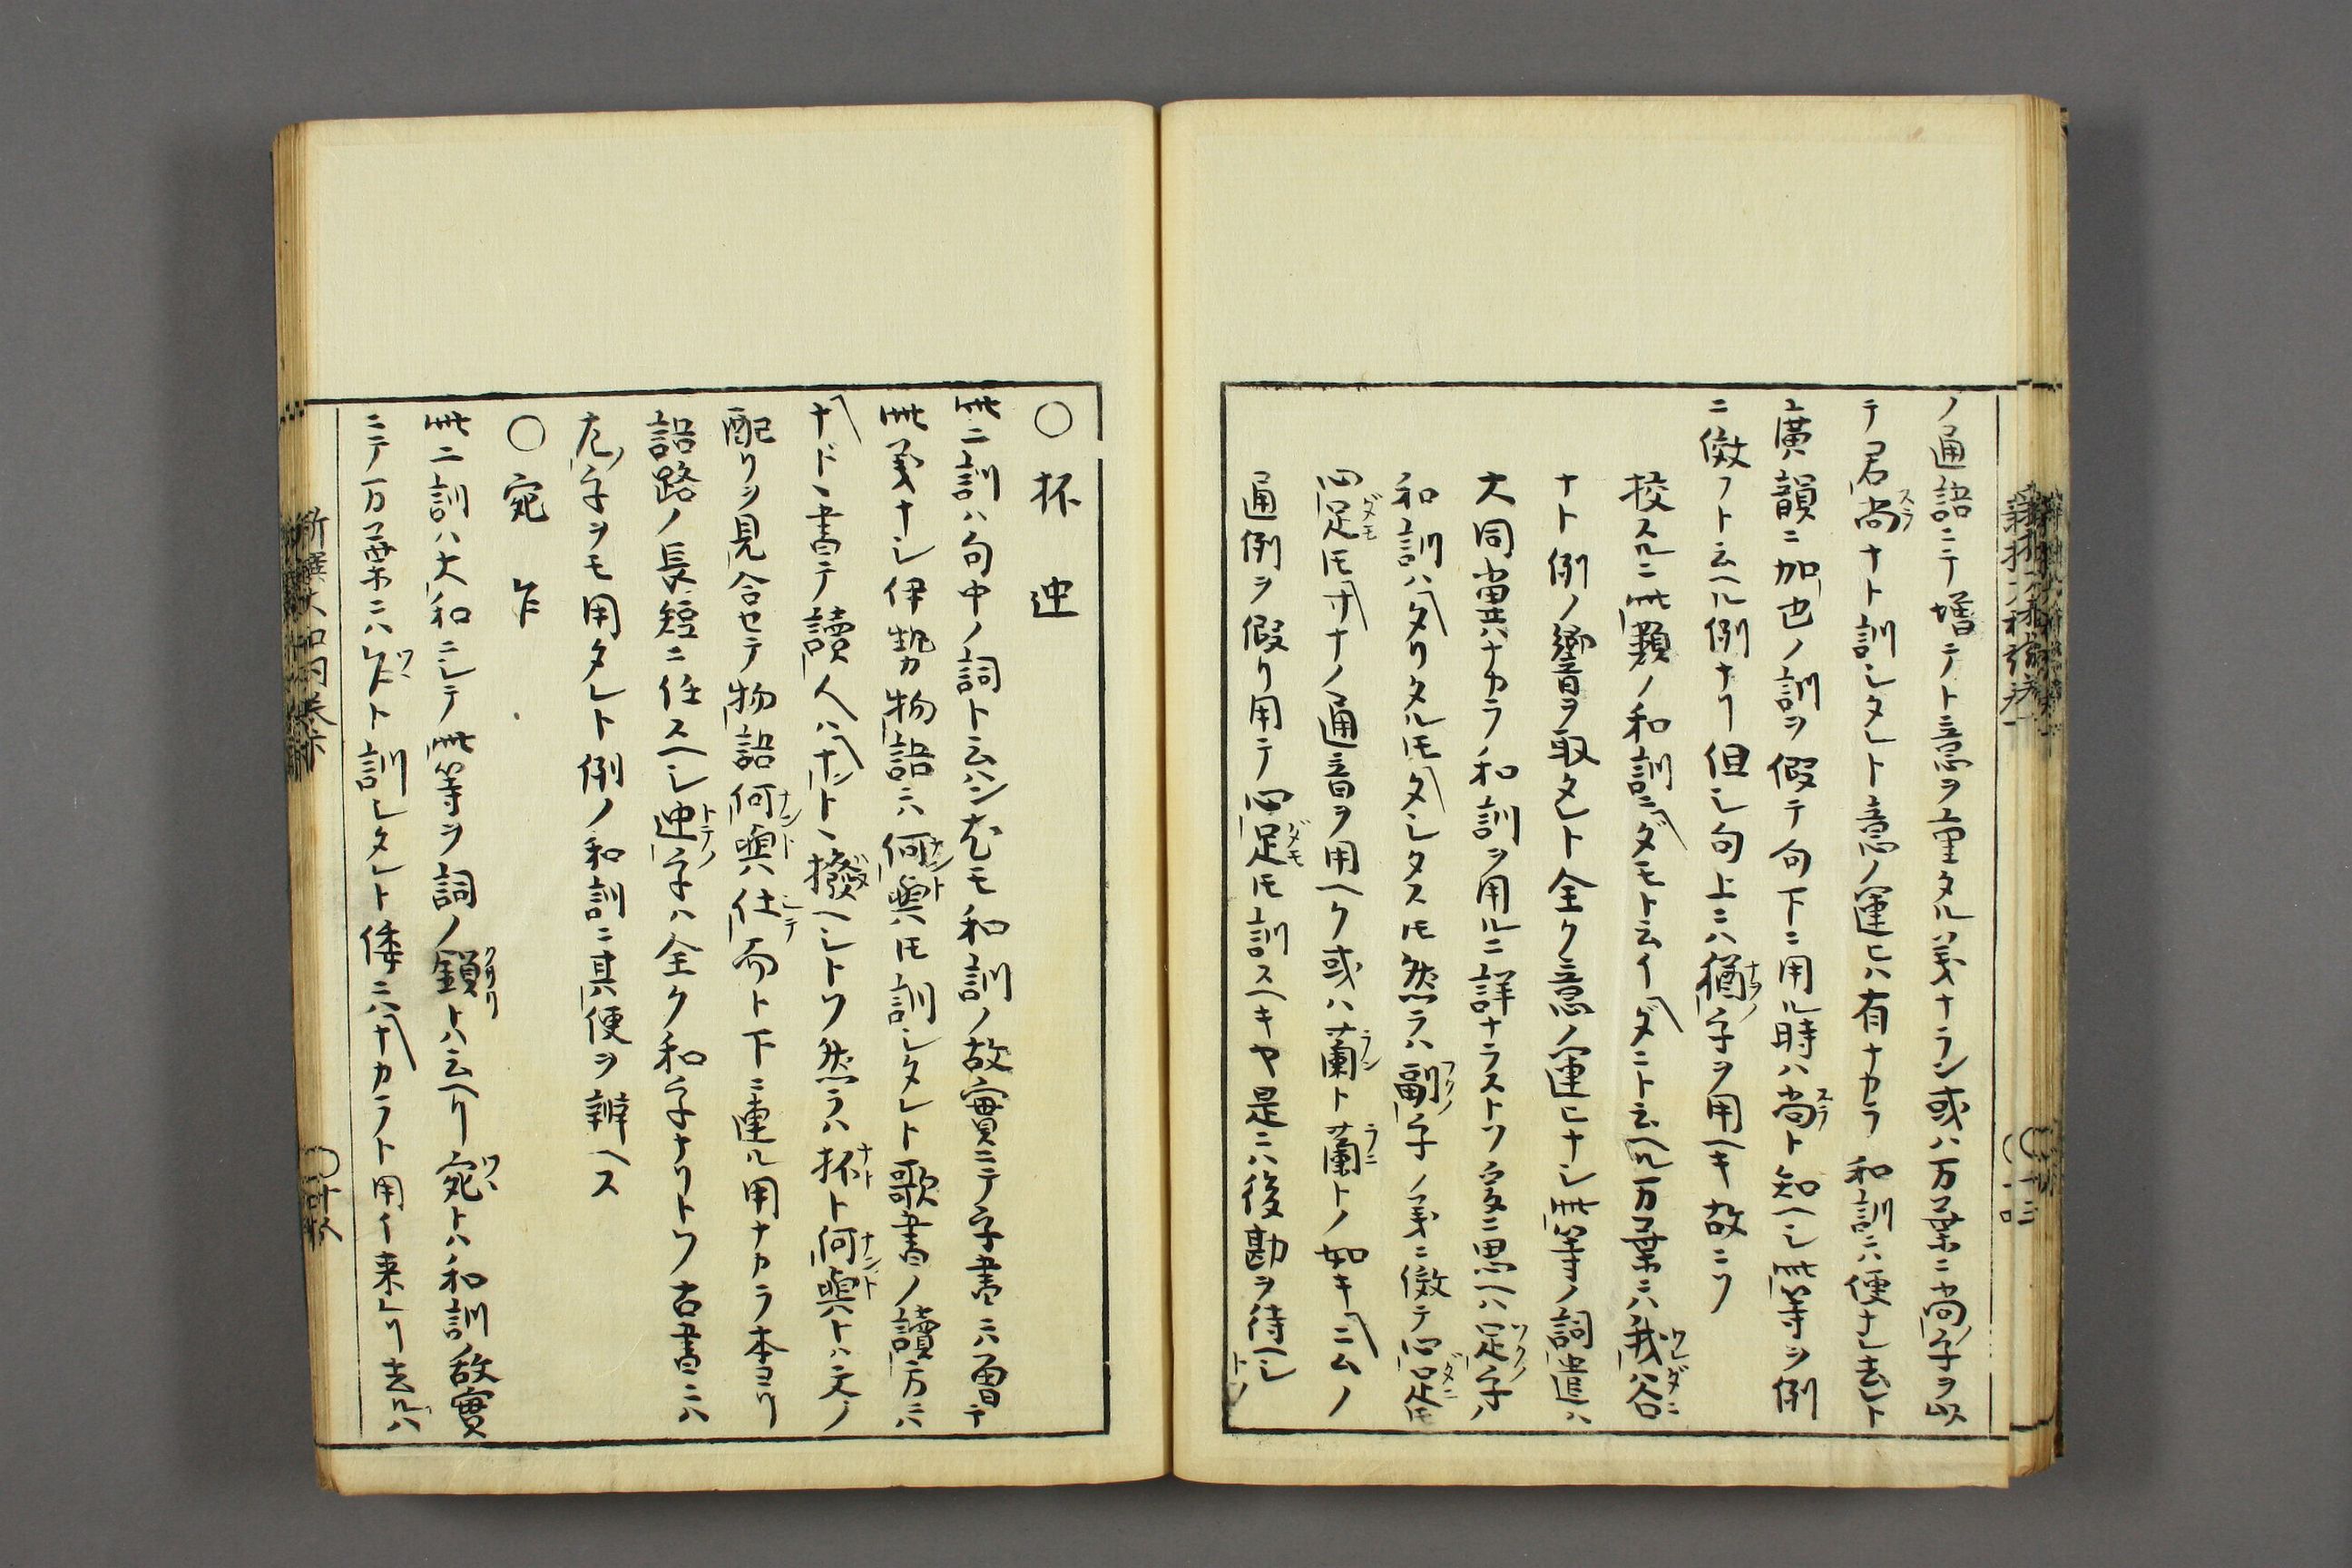 ノ通語ニテ増テト意ヲ重タル義ナラン或ハ万葉ニ尚字ヲ以
テ君尚スラナト訓シタレト意ノ運ヒハ有ナカラ和訓ニハ便ナシ去レト
廣韻ニ加也ノ訓ヲ假テ句下ニ用ル時ハ尚スラト知ヘシ此等ヲ例
ニ傚フト云ヘル例ナリ但シ句上ニハ猶ナヲノ字ヲ用ヘキ故ニソ
挍スルニ此類ノ和訓ニダモト云イダニト云ヘル万葉ニハ我谷ワレダニ
ナト例ノ響音ヲ取タレト全ク意ノ運ヒナシ此等ノ詞遣ハ
大同異ナカラ和訓ヲ用ルニ詳ナラストソ爰ニ思ヘハ足ソクノ字ハ
和訓ハタリタル𪜈タシタス𪜈然ラハ副フクノ字ノ義ニ傚テ心足ダニ𪜈
心足ダモ𪜈ナノ通音ヲ用ヘク或ハ蘭ラント蘭ラニトノ如キニムノ
通例ヲ假リ用テ心足ダモ𪜈訓スヘキヤ是ニハ後勘ヲ待ヘシトソ
○ 抔 迚
此二訓ハ句中ノ詞ト云ハンカ尤モ和訓ノ故實ニテ字書ニハ曽テ
此義ナシ伊勢カ物語ニハ何與ナント𪜈訓シタレト歌書ノ讀方ニハ
ナドヽ書テ讀人ハナントヽ撥ヘシトソ然ラハ抔ナトト何與ナントトハ文ノ
配リヲ見合セテ物語何與ナント仕シテ而ト下ニ連ル用ナカラ本ヨリ
語路ノ長短ニ任スヘシ迚トテノ字ハ全ク和字ナリトソ古書ニハ
字ヲモ用タレト例ノ和訓ニ其便ヲ辨ヘス
○ 宛 乍
此二訓ハ大和ニシテ此等ヲ詞ノ鎖クサリトハ云ヘリ宛ツヽトハ和訓ノ故實
ニテ万葉ニハ乍ツヽト訓シタレト倭ニハナカラト用イ来レリ去レハ